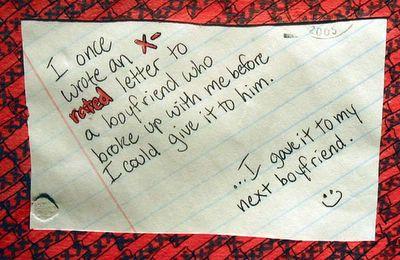 2005
I once
wrote an X-
rated letter to
a boyfriend who
broke up with me before
I could give it to him.
...I gave it to my
next boyfriend.